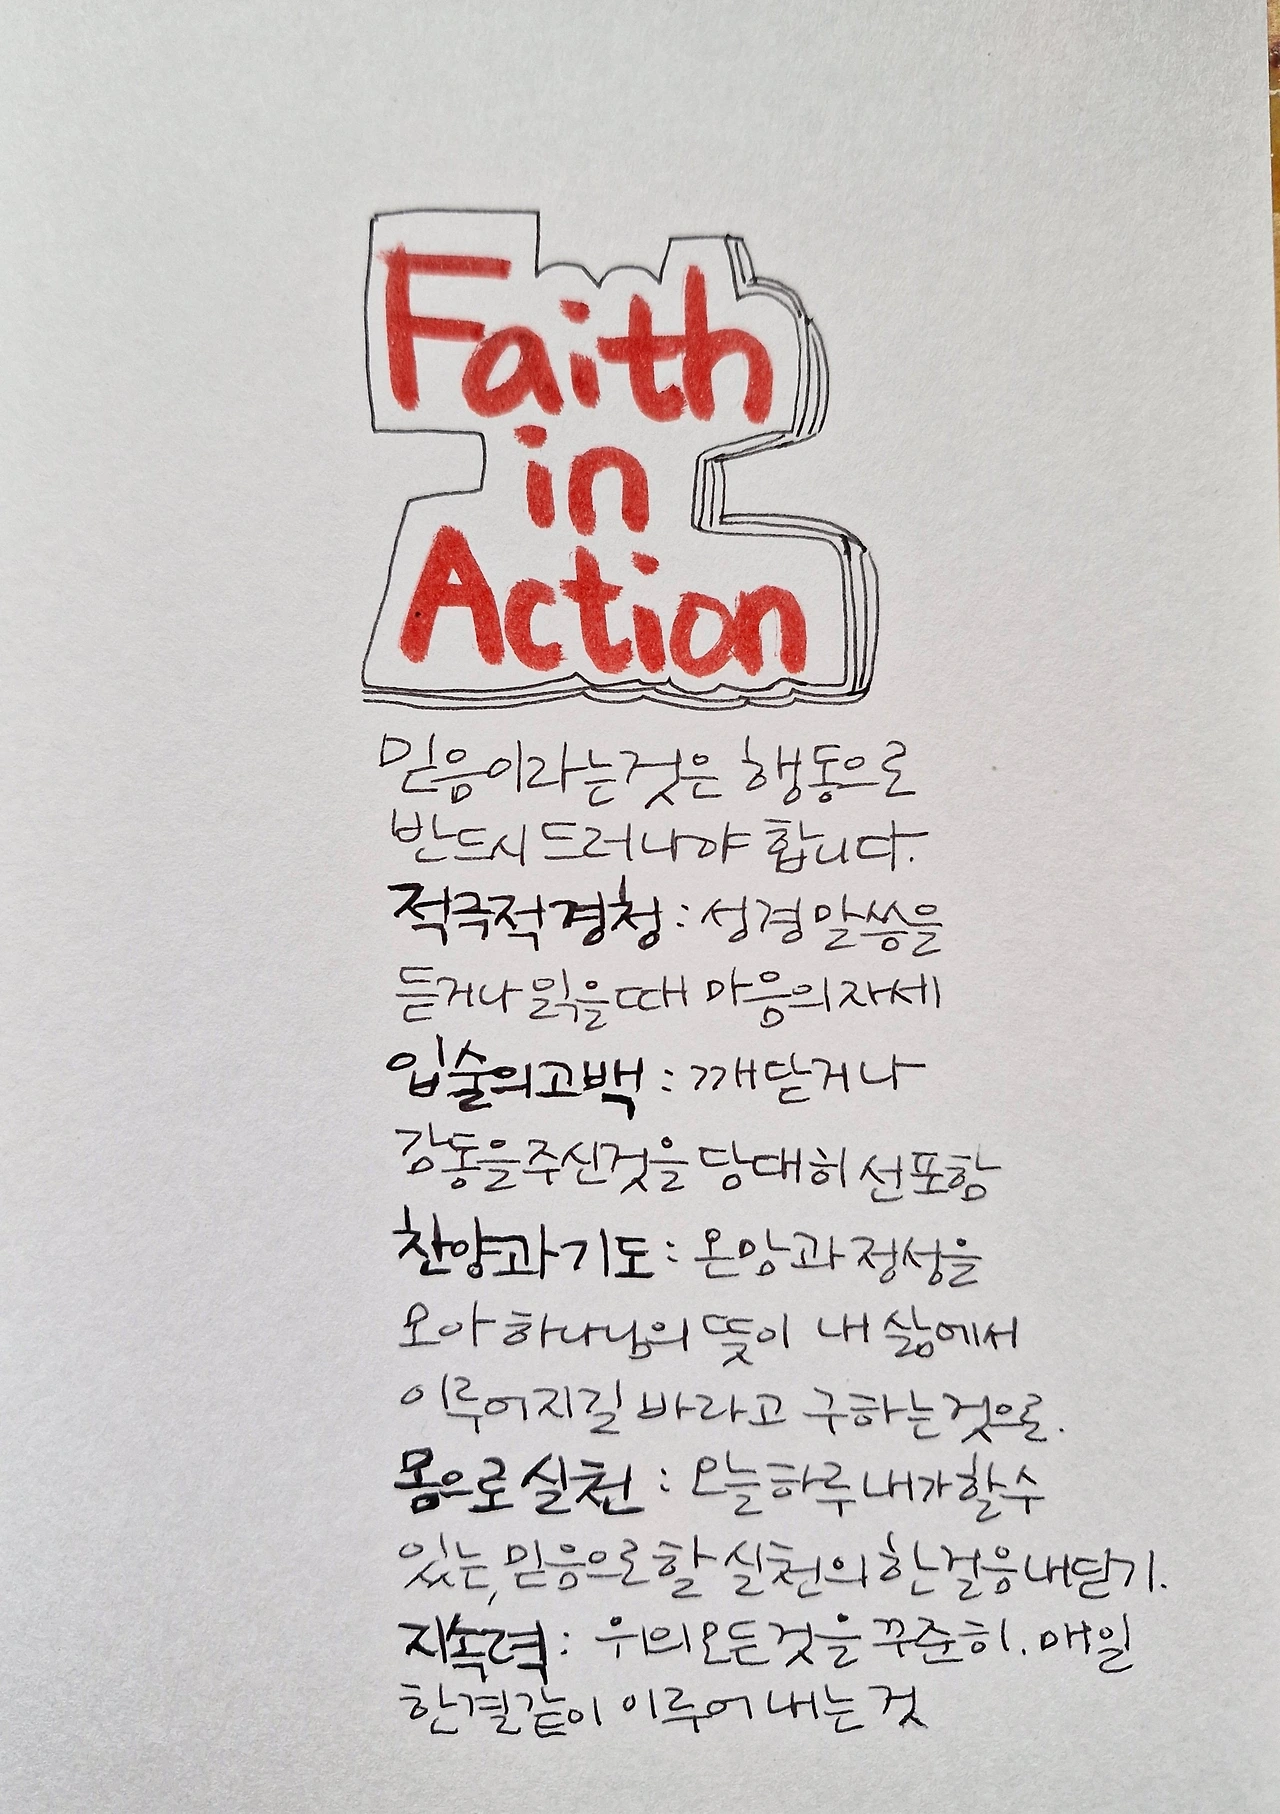 Faith
in
Action
믿음이라는것은 행동으로
반드시 드러나야 합니다.
적극적 경청 : 성경 말씀을
듣거나 읽을때 마음의 자세
입술의 고백 : 깨닫거나
감동을 주신것을 담대히 선포함
찬양과 기도 : 온맘과 정성을
모아 하나님의 뜻이 내 삶에서
이루어지길 바라고 구하는것으로.
몸으로 실천 : 오늘하루 내가 할수
있는, 믿음으로 할 실천의 한걸음 내딛기.
지속력 : 위의 모든것을 꾸준히. 매일
한결같이 이루어 내는 것